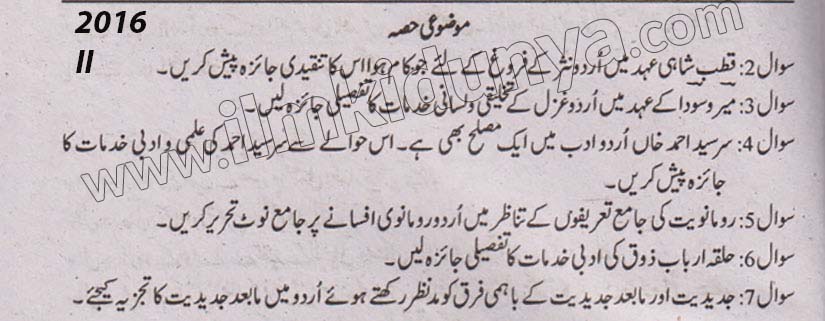 2016
II
موضوعی حصہ
سوال 2: قطب شاہی عہد میں اُردو نثر کے فروغ کے لئے جو کام ہوا اس کا تنقیدی جائزہ پیش کریں۔
سوال 3: میر و سودا کے عہد میں اردو غزل کے تخلیقی و لسانی خدمات کا تفصیلی جائزہ لیں۔
سوال 4: سر سید احمد خاں اُردو ادب میں ایک مصلح بھی ہے۔ اس حوالے سے سر سید احمد کی علمی و ادبی خدمات کا
جائزہ پیش کریں۔
سوال 5: رومانویت کی جامع تعریفوں کے تناظر میں اُردو رومانوی افسانے پر جامع نوٹ تحریر کریں۔
سوال 6: حلقہ ارباب ذوق کی ادبی خدمات کا تفصیلی جائزہ لیں۔
سوال 7: جدیدیت اور مابعد جدیدیت کے باہمی فرق کو مدنظر رکھتے ہوئے اُردو میں مابعد جدیدیت کا تجزیہ کیجئے۔
www.ilmkidunya.com
www.ilmkidunya.com